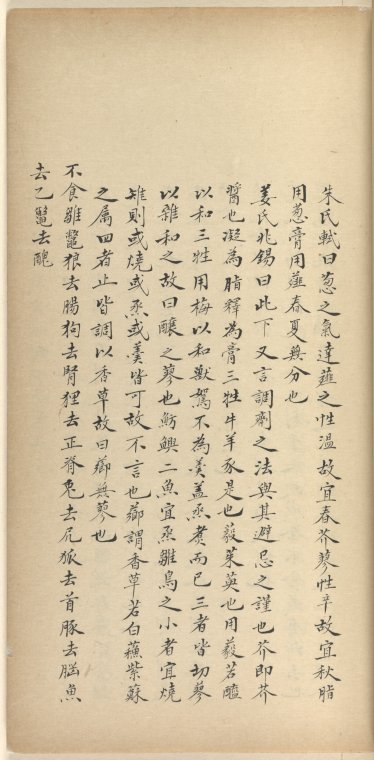 朱氏軾曰蔥之氣達薤之性溫故宜春芥蓼性辛故宜秋脂
用蔥膏用薤春夏無分也
姜氏兆錫曰此下又言調劑之法與其避忌之謹也芥即芥
醤也凝為脂釋為膏三牲牛羊豕是也藙茱萸也用藙若醯
以和三牲用梅以和獸鴽不為羮盖烝煑而已三者皆切蓼
以雜和之故曰釀之蓼也魴鱮二魚宜烝雛鳥之小者宜燒
雉則或燒或烝或羮皆可故不言也薌謂香草若白蘓紫蘇
之属四者止皆調以香草故曰薌無蓼也
不食雛鼈狼去腸狗去腎狸去正脊兎去尻狐去首豚去腦魚
去乙鼈去醜